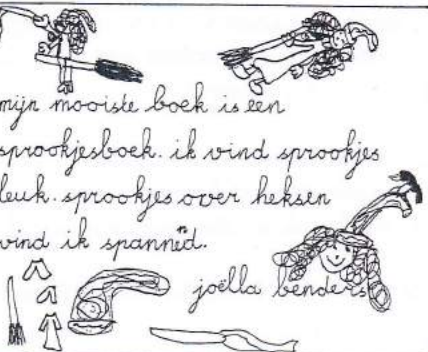 mijn mooiste boek is een
sprookjesboek. ik vind sprookjes
leuk. sprookjes over heksen
vind ik spannend.
joëlla benders